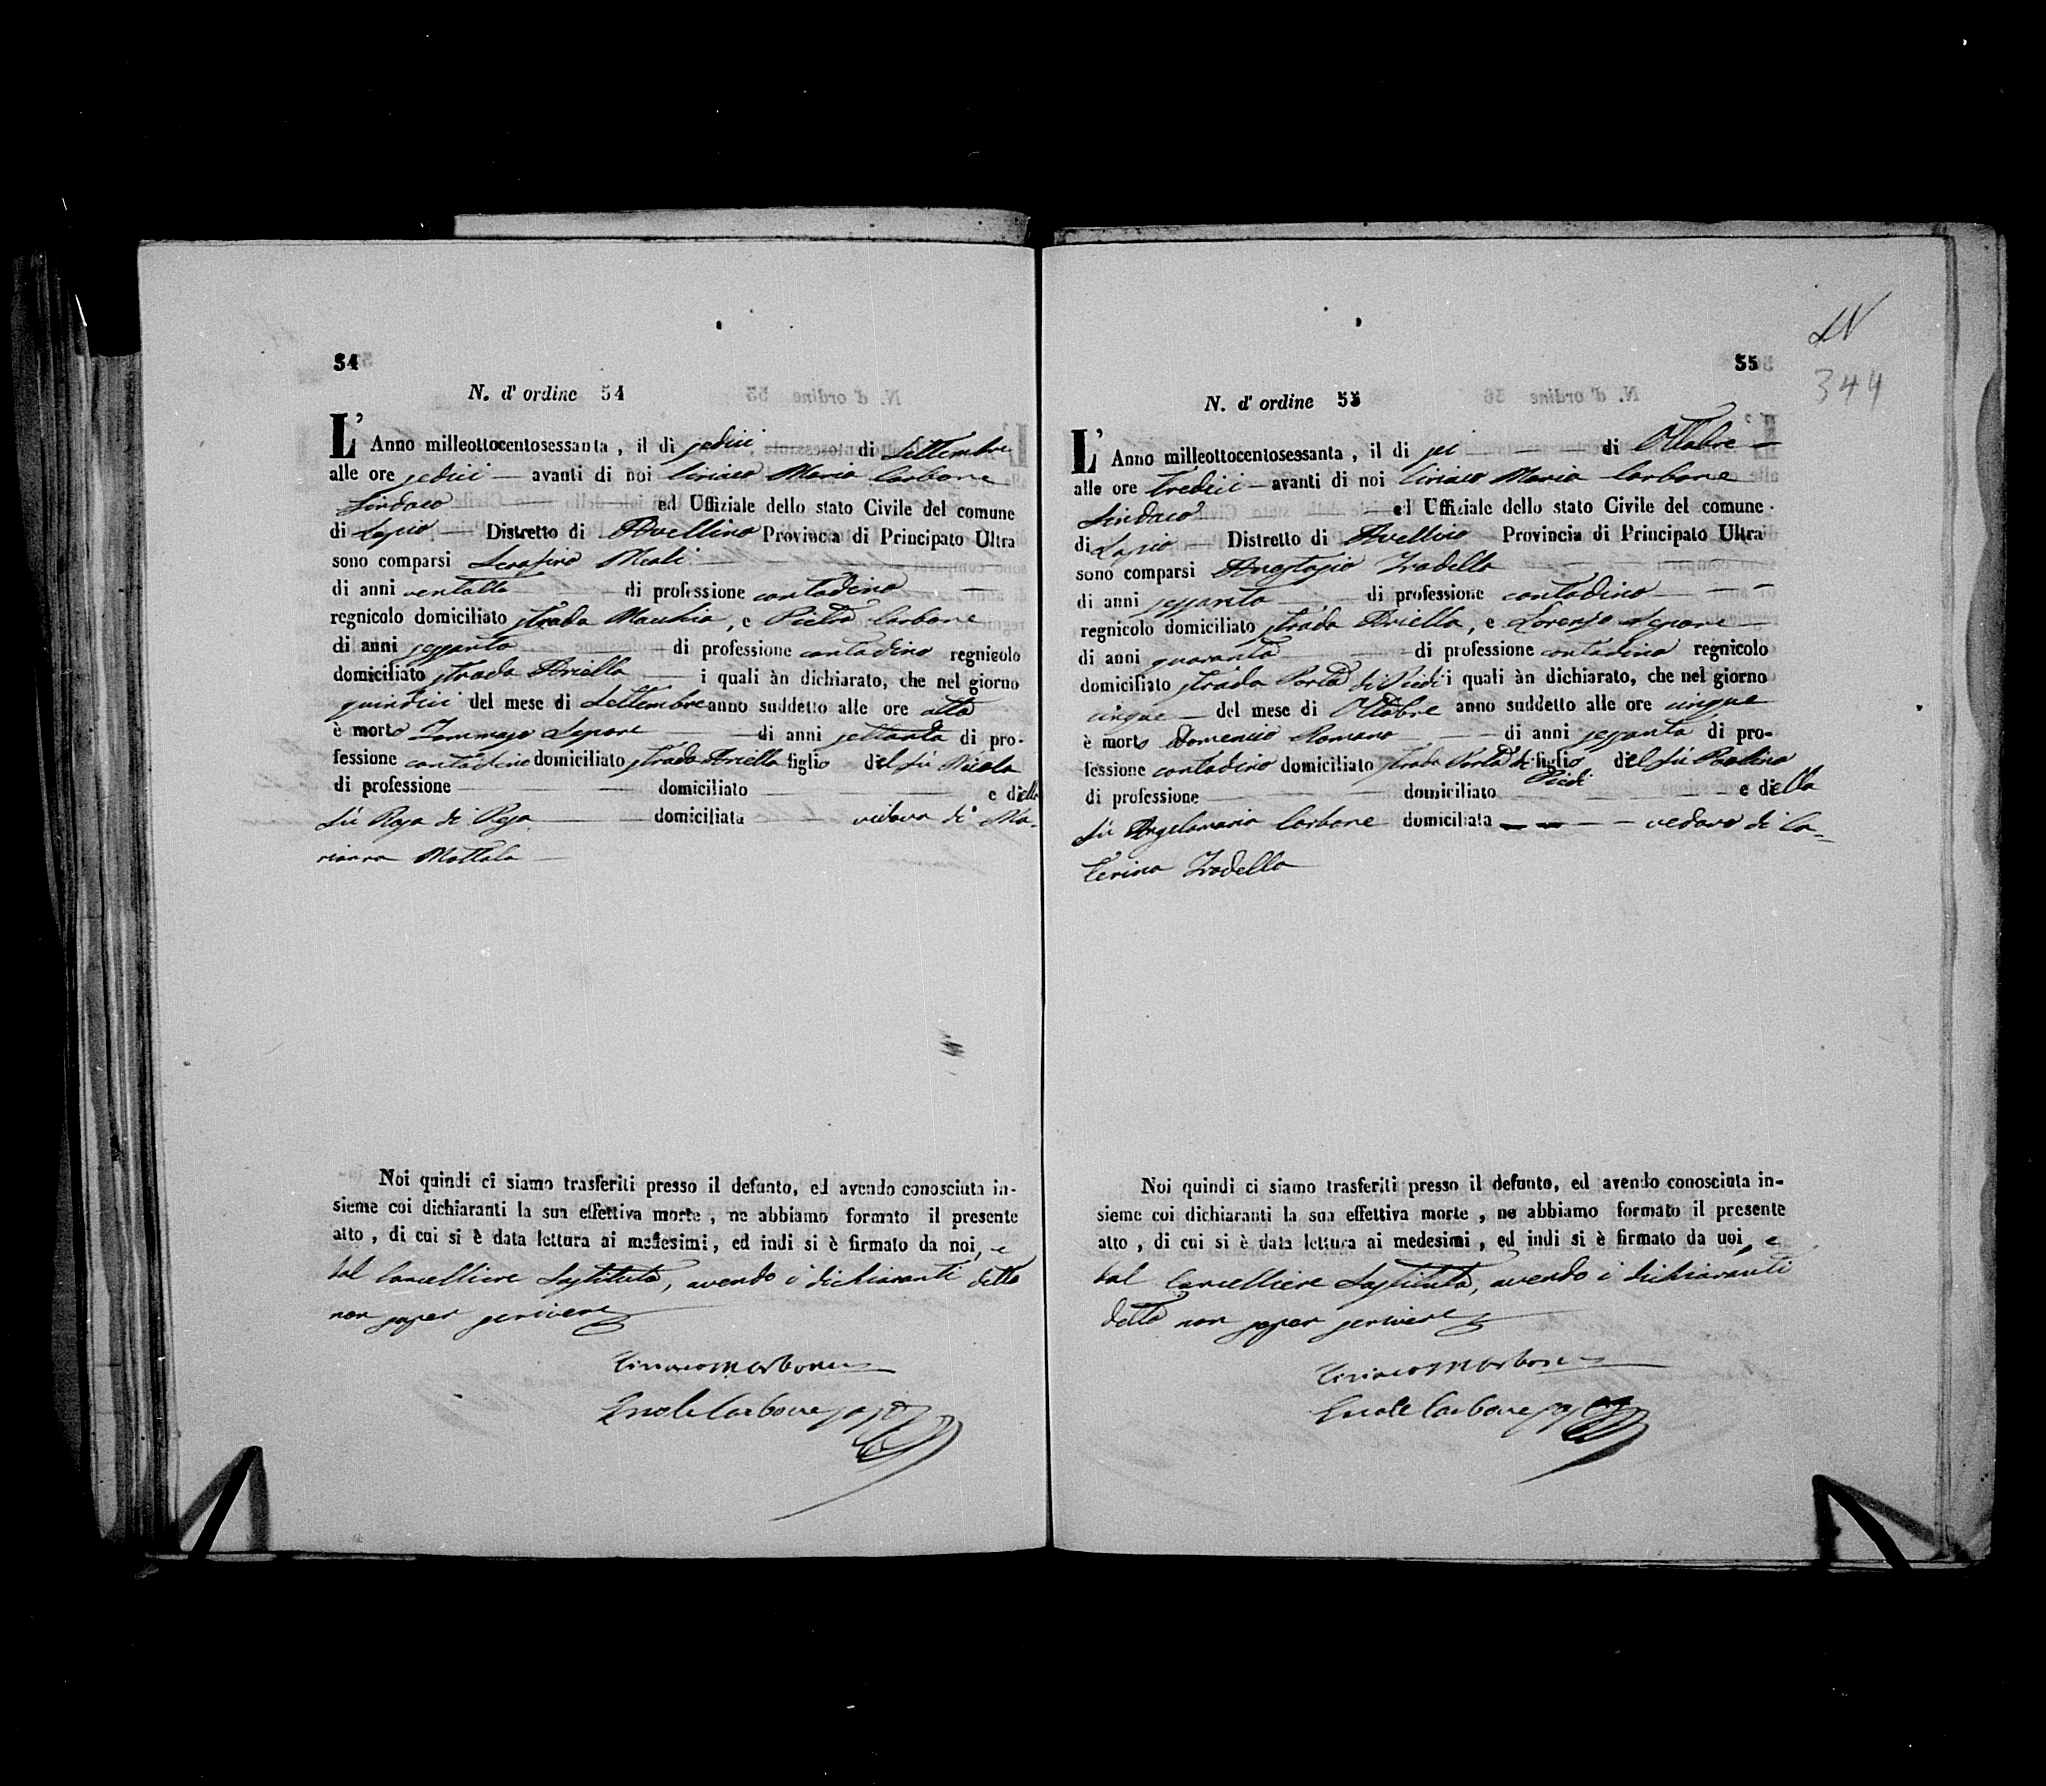 54
N. d' ordine 54
L' Anno milleottocentosessanta , il di sedici di Settembre
alle ore sedici avanti di noi Ciriaco Maria Carbone
Sindaco ed Uffiziale dello stato Civile del comune
di Lapio Distretto di Avellino Provincia di Principato Ultra
sono comparsi Serafino Meoli
di anni ventotto di professione contadino
regnicolo domiciliato strada Macchia , e Pietro Carbone
di anni sessanta di professione contadino regnicolo
domiciliato strada Ariella i quali àn dichiarato, che nel giorno
quindici del mese di Settembre anno suddetto alle ore otto
è morto Tommaso Lepore di anni settanta di pro-
fessione contadino domiciliato strada Ariella figlio del fù Nicola
di professione domiciliato e della
fù Rosa di domiciliata vedovo di Ma-
rianna
Noi quindi ci siamo trasferiti presso il defunto, ed avendo conosciuta in-
sieme coi dichiaranti la sua effettiva morte , ne abbiamo formato il presente
atto , di cui si è data lettura ai medesimi , ed indi si è firmato da noi, e
dal Cancelliere Sostituto, avendo i dichiaranti detto
non saper scrivere
Ciriaco M Carbone
Carbone
55
LV
344
N. d' ordine 55
L' Anno milleottocentosessanta , il di sei di Ottobre
alle ore tredici avanti di noi Ciriaco Maria Carbone
Sindaco ed Uffiziale dello stato Civile del comune
di Lapio Distretto di Avellino Provincia di Principato Ultra
sono comparsi Anastasio Iradella
di anni sessanta di professione contadino
regnicolo domiciliato strada Ariella , e Lorenzo Lepore
di anni quaranta di professione contadino regnicolo
domiciliato strada Porta di Piedi i quali àn dichiarato, che nel giorno
cinque del mese di Ottobre anno suddetto alle ore cinque
è morto Domenico Romano di anni sessanta di pro-
fessione contadino domiciliato strada Porta di figlio del fù Paolino
Piedi
di professione domiciliato e della
fù Angelamaria Carbone domiciliata vedovo di Ca-
terina Iradella
Noi quindi ci siamo trasferiti presso il defunto, ed avendo conosciuta in-
sieme coi dichiaranti la sua effettiva morte , ne abbiamo formato il presente
atto , di cui si è data lettura ai medesimi , ed indi si è firmato da noi, e
dal Cancelliere Sostituto, avendo i dichiaranti
detto non saper scrivere
Ciriaco M Carbone
Carbone